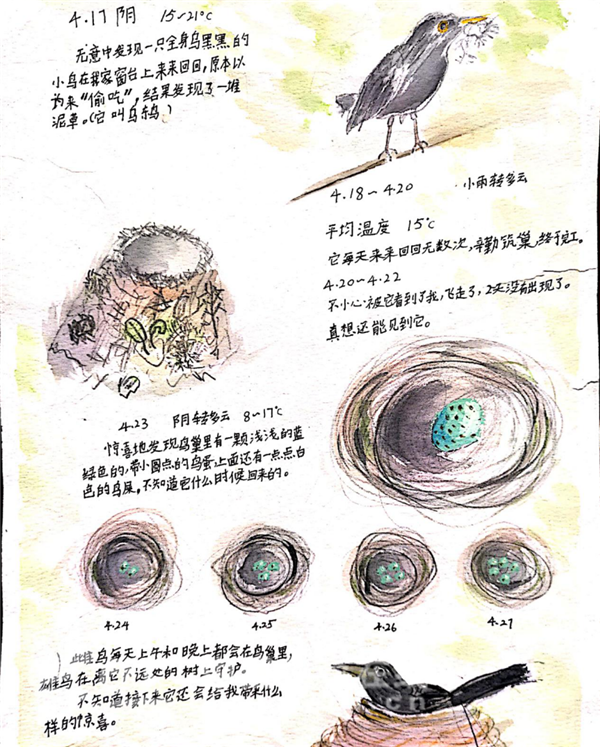 4.17 阴 15~21℃
无意中发现一只全身乌黑黑的
小鸟在我家窗台上来来回回,原本以
为来“偷吃”,结果发现了一堆
泥草。(它叫乌鸫)
4.18~4.20 小雨转多云
平均温度 15℃
它每天来来回回无数次,辛勤筑巢,终于完工。
4.20~4.22
不小心被它看到了我,飞走了,2天没有出现了。
真想还能见到它。
4.23 阴转多云 8~17℃
惊喜地发现鸟巢里有一颗浅浅的蓝
绿色的,带小圆点的鸟蛋,上面还有一点点白
色的鸟屎。不知道它什么时候回来的。
4.24 4.25 4.26 4.27
雌鸟每天上午和晚上都会在鸟巢里,
雄鸟在离它不远处的树上守护。
不知道接下来它还会给我带来什么
样的惊喜。